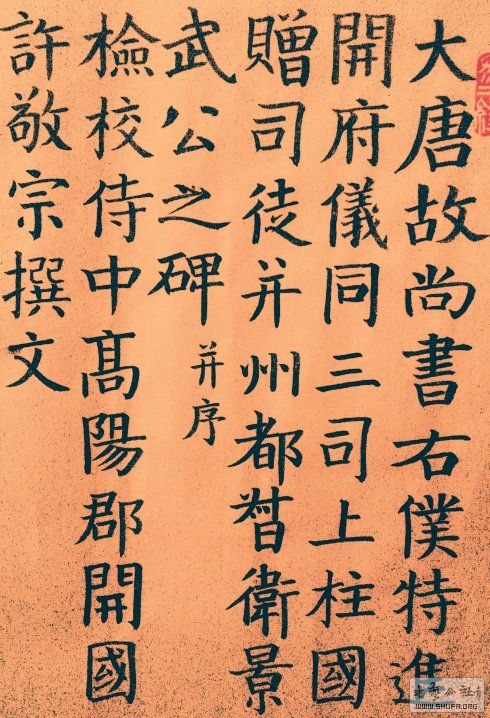 大唐故尚書右僕特進
開府儀同三司上柱國
贈司徒并州都督衛景
武公之碑 并序
檢校侍中髙陽郡開國
許敬宗撰文
公社
WWW.SHUFA.ORG